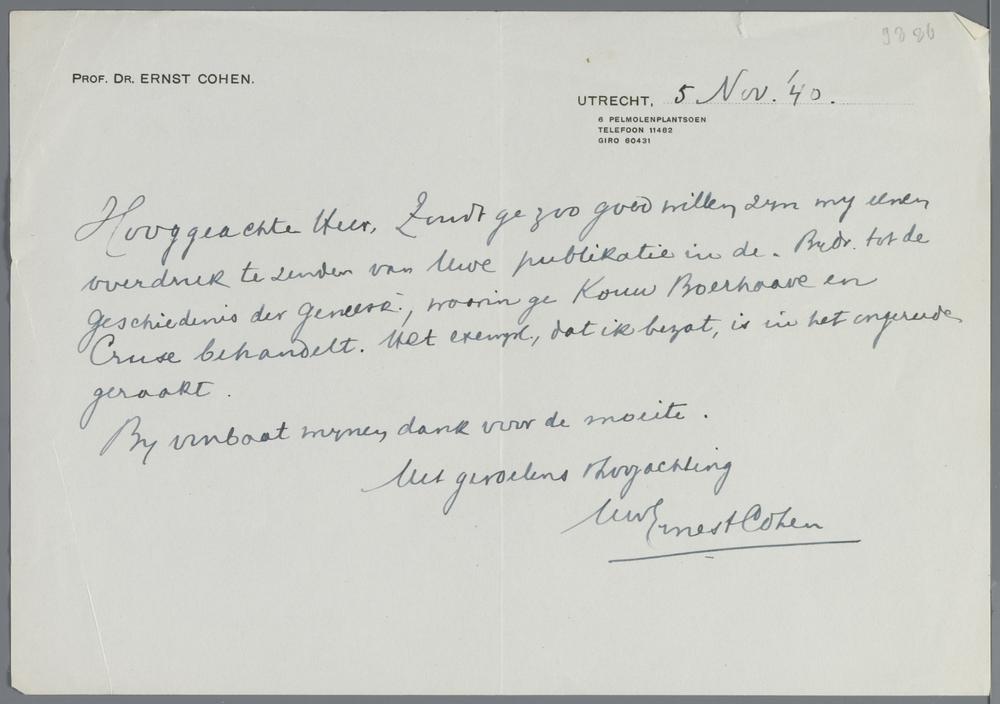 9886
PROF. DR. ERNST COHEN.
UTRECHT, 5 Nov. '40.
6 PELMOLENPLANTSOEN
TELEFOON 11462
GIRO 60431
Hooggeachte Heer, Zoudt ge zoo goed willen zyn my eenen
overdruk te zenden van Uwe publikatie in de. Bydr. tot de
geschiedenis der Geneesk., waarin ge Kouw Boerhaave en
Cruse behandelt. Het exempl., dat ik bezat, is in het ongereede
geraakt.
By voorbaat mynen dank voor de moeite.
Met gevoelens v hoogachting
Uw Ernst Cohen